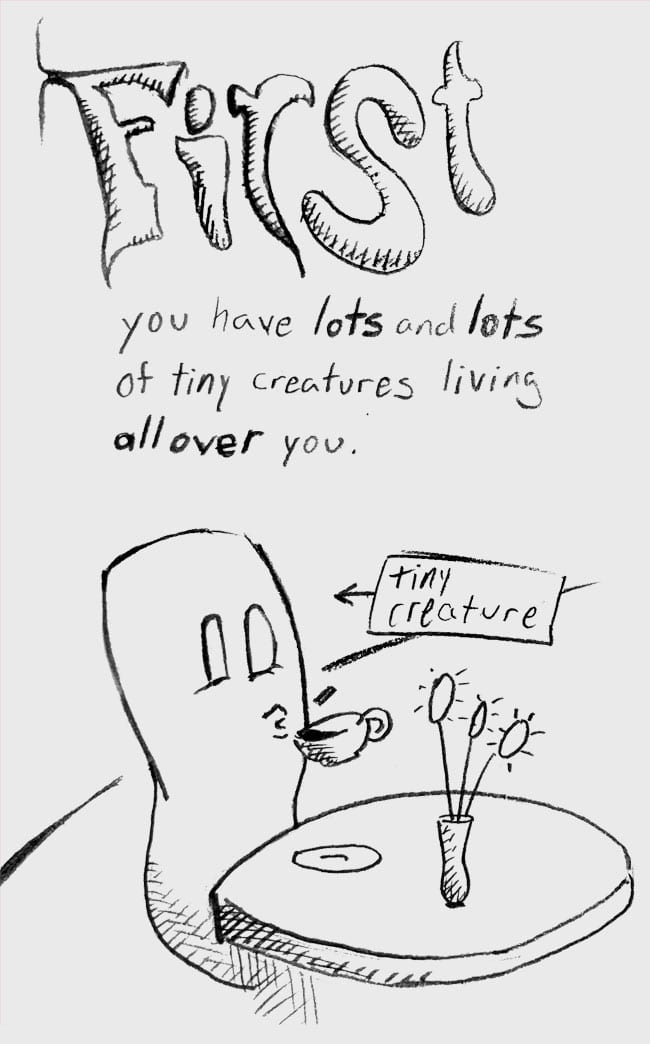 First
you have lots and lots
of tiny creatures living
all over you.
tiny
creature